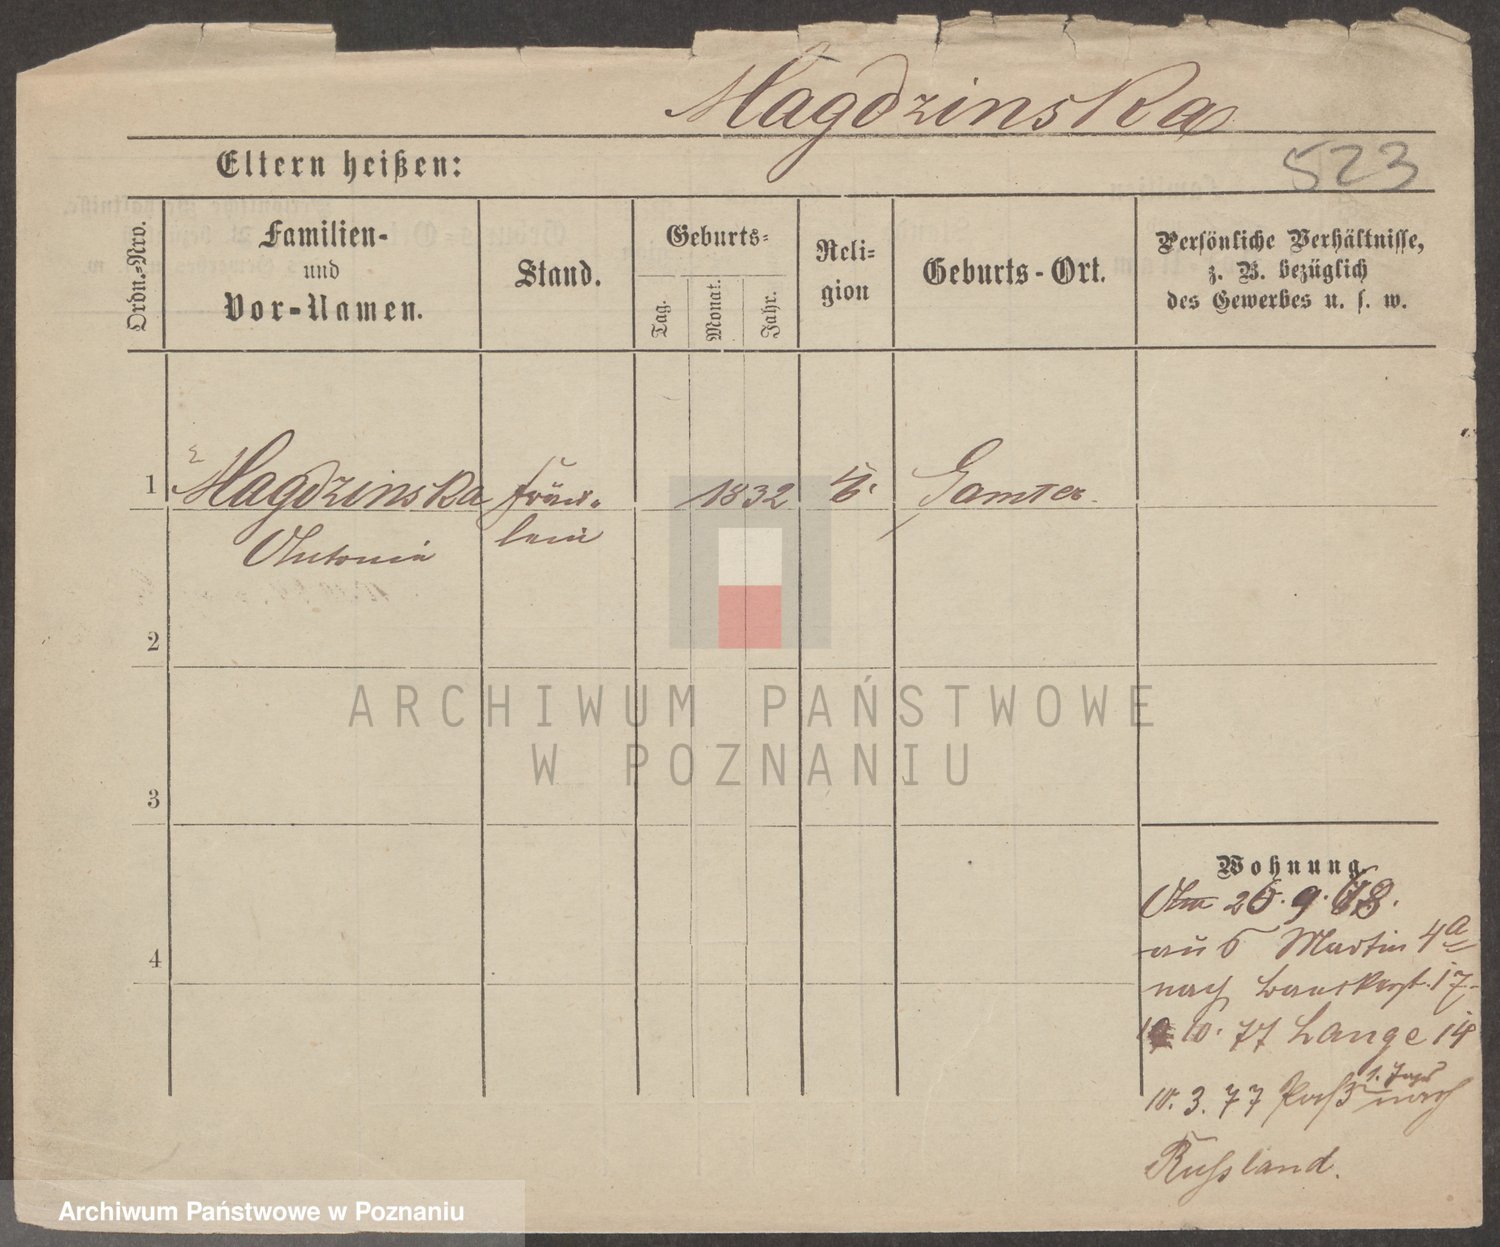 Magdzinska
Eltern heißen:
523
Ordn.-Nro.
Familien-
und
Vor-Namen.
Stand.
Geburts-
Tag.
Monat.
Jahr.
Reli-
gion
Geburts-Ort.
Persönliche Verhältnisse,
z. B. bezüglich
des Gewerbes u. s. w.
1
Magdzinska
Antonie
Fräu-
lein
1832
Samter
2
3
4
Wohnung
26.9.68.
aus Martin 4a
nach 17
10. 77 Lange 14
10. 3. 77 Paß nach
Russland.
ARCHIWUM PAŃSTWOWE
W POZNANIU
Archiwum Państwowe w Poznaniu